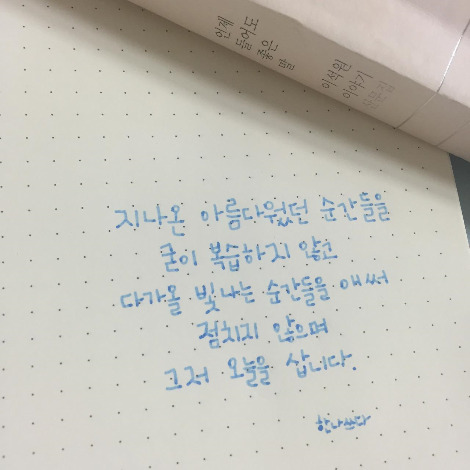 언제
들어도
좋은
말
이석원
이야기
산문집
지나온 아름다웠던 순간들을
굳이 복습하지 않고
다가올 빛나는 순간들을 애써
점치지 않으며
그저 오늘을 삽니다.
한나쓰다